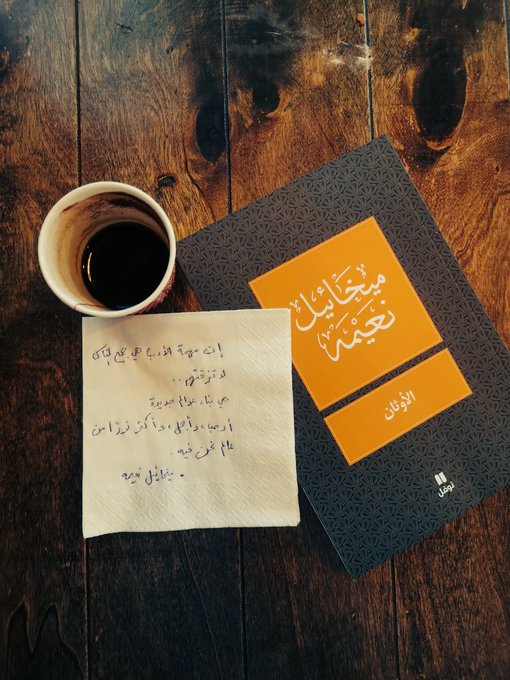 إن مهمة الأدب هي جمع الناس
لا تفرقتهم ..
هي بناء عوالم جديدة
أرحب، وأجمل، وأكثر نورًا من
عالم نحن فيه .
ميخائيل نعيمه .
ميخائيل
نعيمه
الأوثان
نوفل